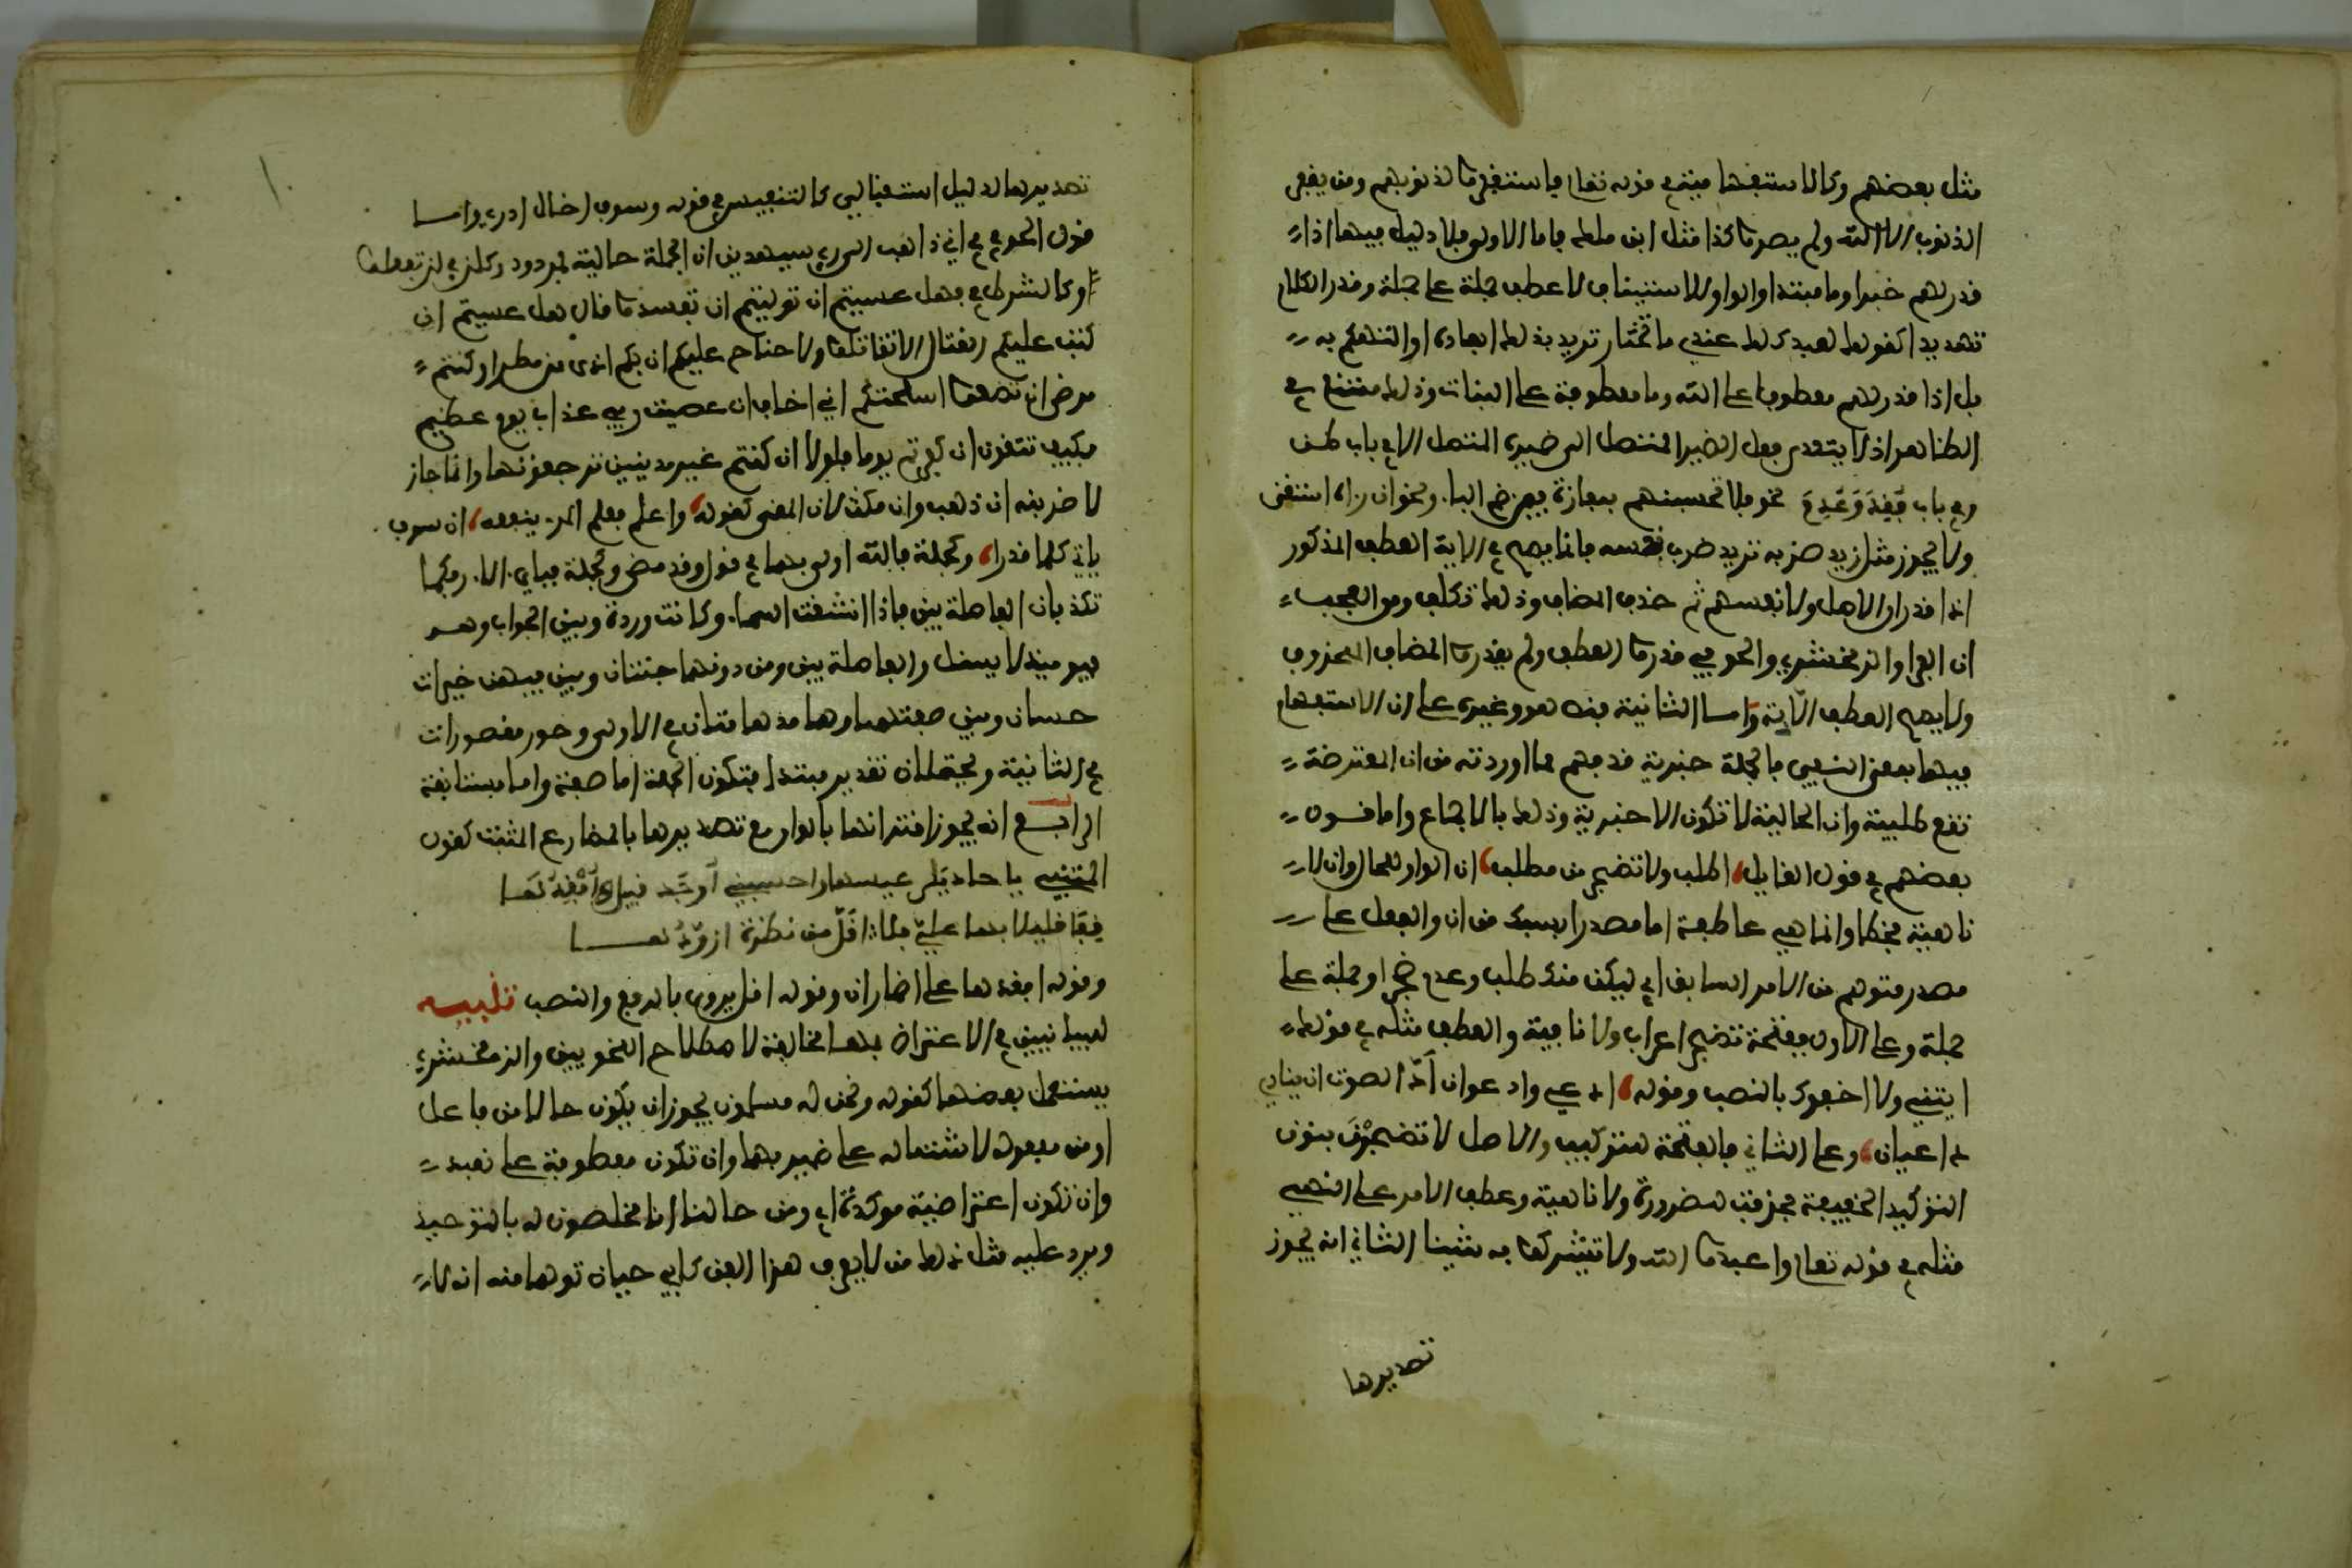 مثل بعضهم وكالاستفهامية في قوله تعالى فاستغفروا لذنوبهم ومن يغفر
الذنوب الا الله ولم يصروا كذا مثل ابن ملك فاما الاولى فلا دليل فيها اذا
قدر لهم خبرا وما مبتدا والواو للاستيناف لا عطف جملة على جملة وقدر الكلام
تهديدا كقولك لعبدك لك عندي ما تختار تريد بذلك ايعاده او التهكم به
بل اذا قدر لهم معطوفا على الله وما معطوفة على البنات وذلك ممتنع في
الظاهر اذ لا يتعدى فعل الضمير المتصل الى ضميره المتصل الا في باب ظن
وفي باب فَقِدَ وَعَدِمَ نحو فلا تحسبنهم بمفازة فيمن ضم الباء ونحو ان راه استغنى
ولا يجوز مثل زيد ضربه تريد ضرب نفسه فانما يصح في الاية العطف المذكور
اذا قدر ان الاصل ولانفسهم ثم حذف المضاف وذلك تكلف ومن العجب
ان الفرا والزمخشري والحوفي قدروا العطف ولم يقدروا المضاف المحذوف
ولا يصح العطف الاية واما الثانية فنص هو وغيره على ان الاستفهام
فيها بمعنى النفي فالجملة خبرية قد فهم مما اوردته من ان المعترضة
تقع طلبية وان الحالية لا تكون الا خبرية وذلك بالاجماع واما قول
بعضهم في قول القايل، اطلب ولا تضجر من مطلب، ان الواو للحال وان لا
ناهية فخطا وانما هي عاطفة اما مصدرا يسبك من ان والفعل على
مصدر متوهم من الامر السابق اي ليكن منك طلب وعدم ضجر او جملة على
جملة وعلى الاول ففتحة تضجر اعراب ولا نافية والعطف مثله في قولك
ايتني ولا اجفوك بالنصب وقوله، ادعي وادعوان اندى الصوت ان ينادي
داعيان، وعلى الثاني فالفتحة للتركيب والاصل لا تضجرن بنون
التوكيد الخفيفة فحذفت للضرورة ولا ناهية وعطف الامر على النهي
مثله في قوله تعالى واعبدوا الله ولا تشركوا به شيئا الثاني انه يجوز
تصديرها
تصديرها لدليل استقبالي كالتنفيس في قوله وسوف اخال ادري واما
قول الحوفي في اني ذاهب الى ربي سيهدين ان الجملة حالية فمردود وكلن في لن تفعلوا
وكالشرط في فهل عسيتم ان توليتم ان تفسدوا قال هل عسيتم ان
كتب عليكم القتال الا تقاتلوا ولا جناح عليكم ان بكم اذى من مطر او كنتم
مرضى ان تضعوا اسلحتكم اني اخاف ان عصيت ربي عذاب يوم عظيم
فكيف تتقون ان كفرتم يوما فلولا ان كنتم غير مدينين ترجعونها وانما جاز
لاضربنه ان ذهب وان مكث لان المعنى كقوله، واعلم فعلم المرء ينفعه، ان سوف
ياتي كلما قدرا، وكجملة فالله اولى بهما في قول وقد مضى وكجملة فباي الاء ربكما
تكذبان الفاصلة بين فاذا انشقت السماء وكانت وردة وبين الجواب وهو
فيوميذ لا يسئل والفاصلة بين ومن دونهما جنتان وبين فيهن خيرات
حسان وبين صفتهما وهما مدهامتان في الاولى وحور مقصورات
في الثانية ويحتملان تقدير مبتدا فتكون الجملة اما صفة واما مستانفة
الرابع انه يجوز اقترانها بالواو مع تصديرها بالمضارع المثبت كقول
المتنبي يا حاديَي عيسها واحسبني أوجَد قبيل أفقدُها
قِفَا قليلا بها عليّ فلا اقلَّ من نظرة ازوّدُها
وقوله افقدها على اضمار ان وقوله اقل يروى بالرفع والنصب تنبيه
للبيانيين في الاعتراض بها مخالفة لاصطلاح النحويين والزمخشري
يستعمل بعضها كقوله ونحن له مسلمون يجوز ان يكون حالا من فاعل
او من مفعوله لاشتماله على ضميريهما وان تكون معطوفة على نعبد
وان تكون اعتراضية موكدة اي ومن حالنا انا مخلصون له بالتوحيد
ويرد عليه مثل ذلك من لا يعرف هذا الفن كابي حيان توهما منه انه لا